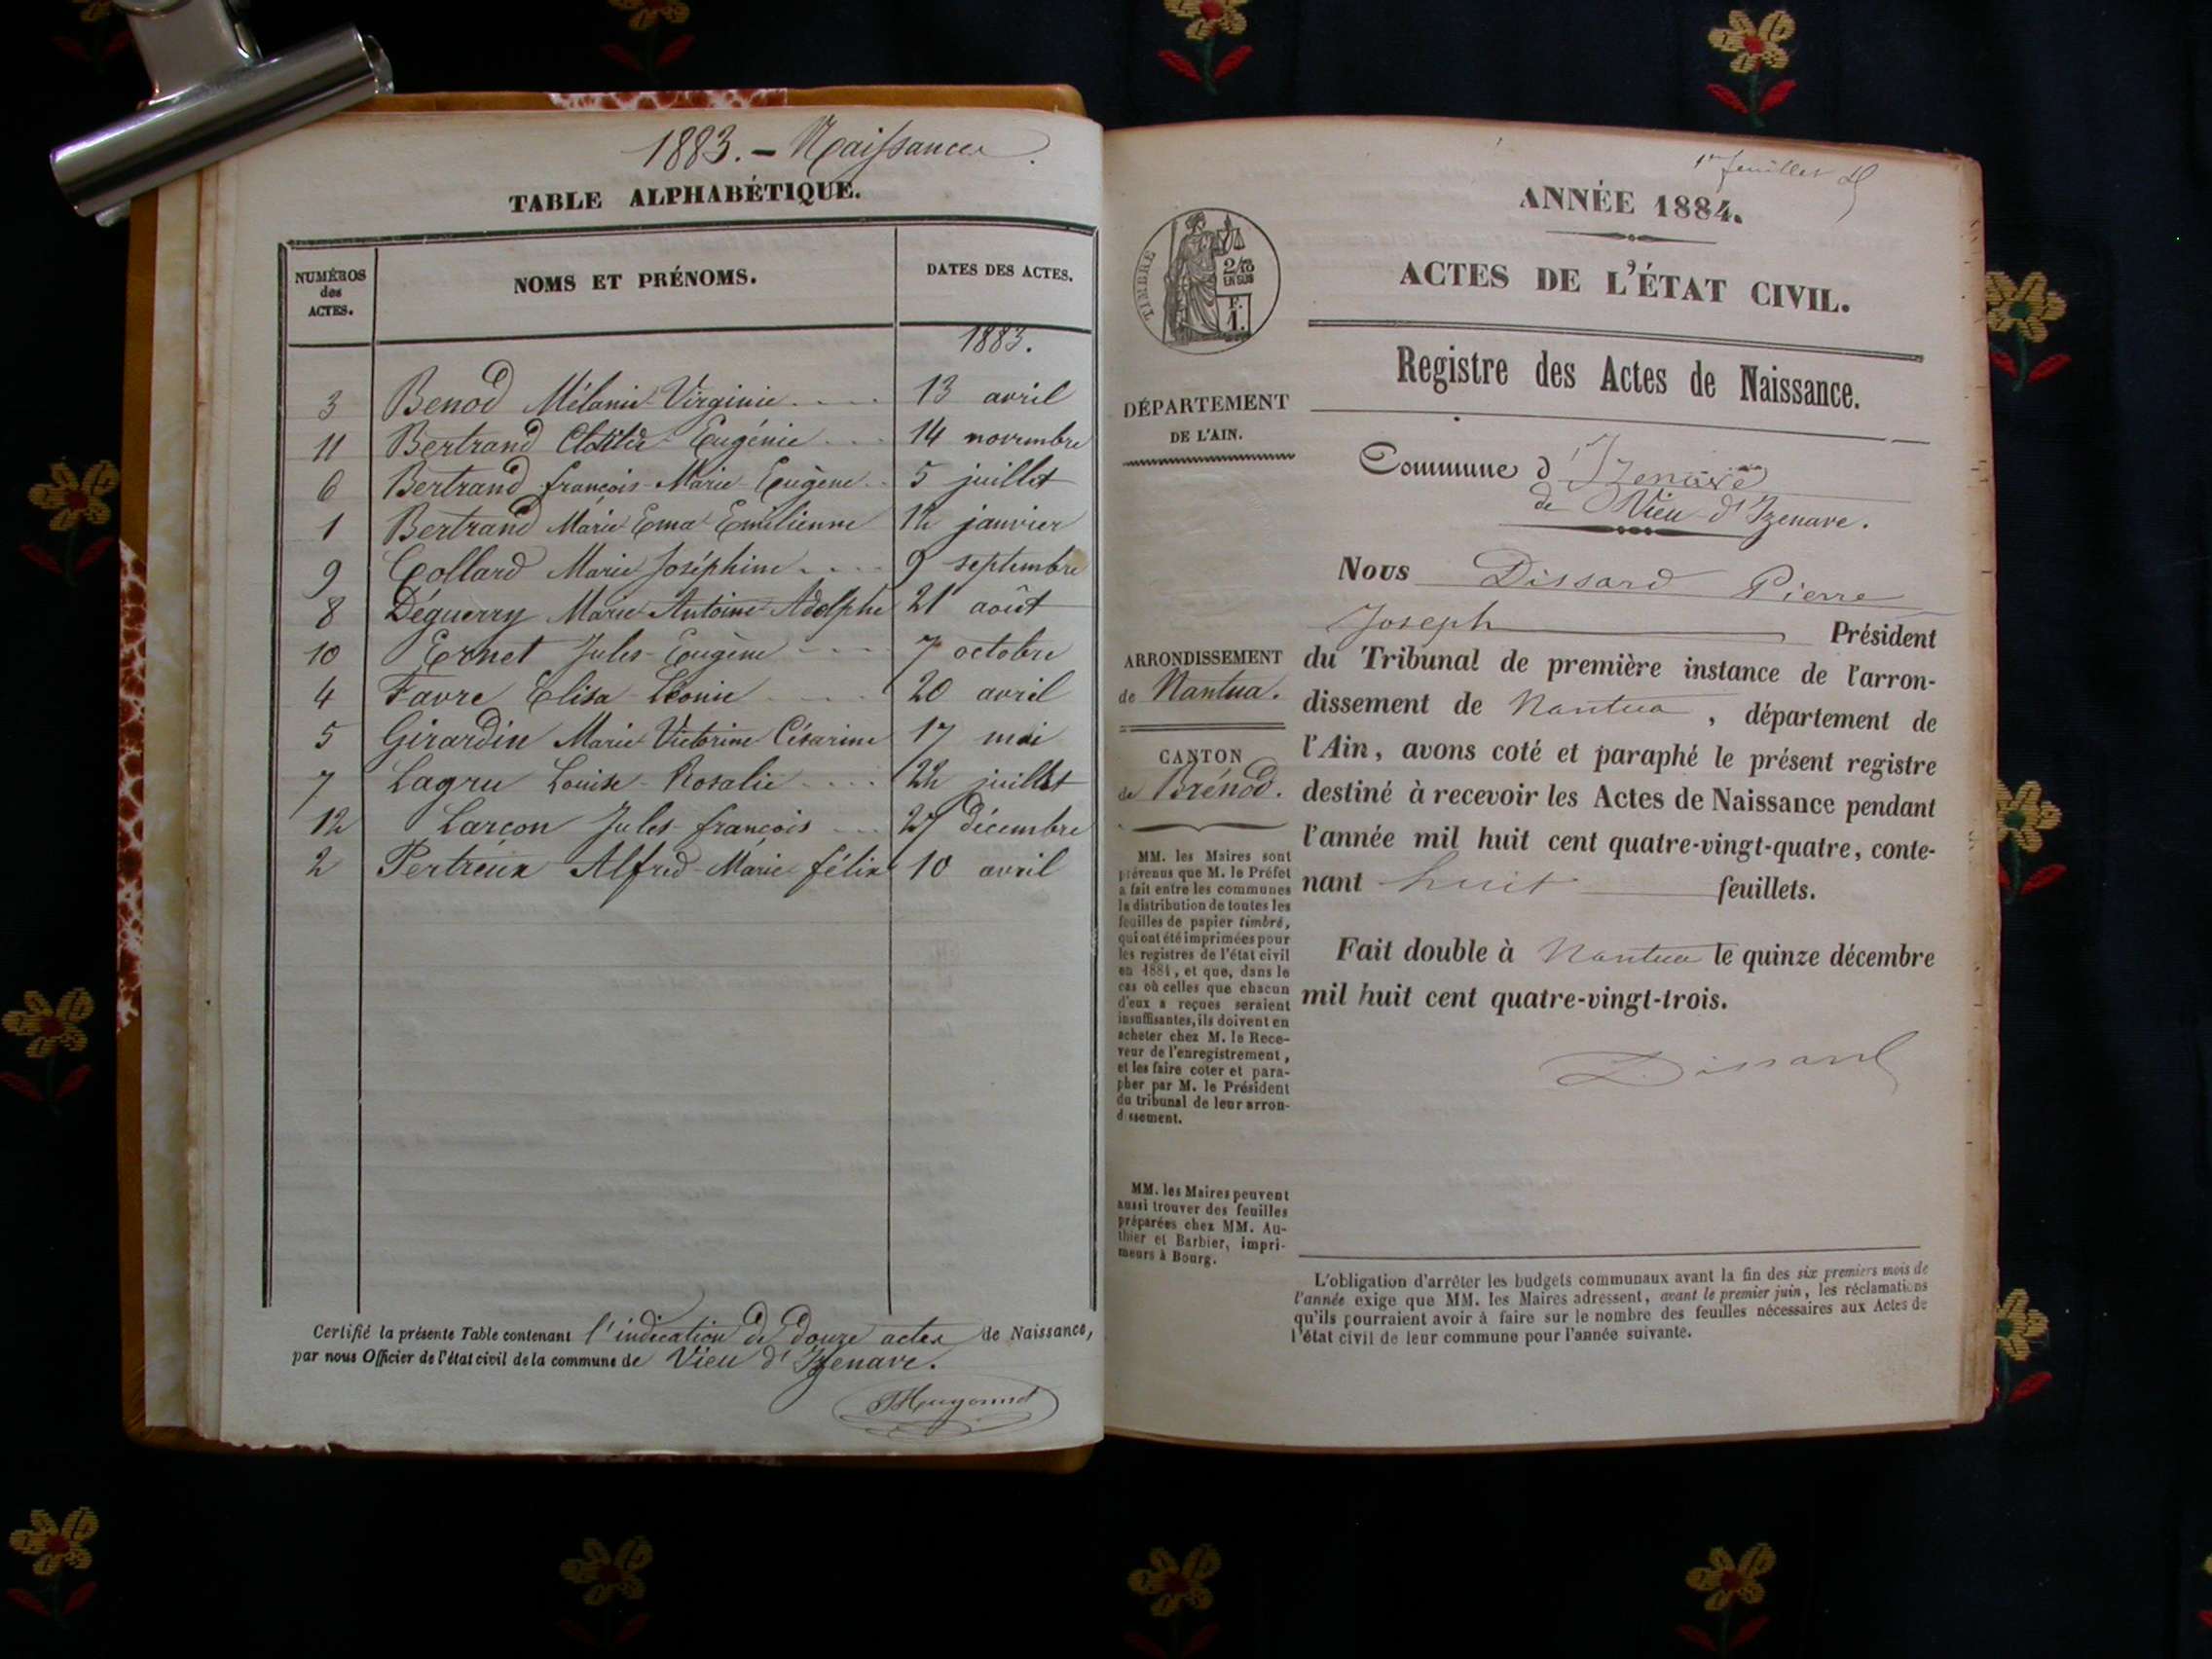 1883. - Naissances.
TABLE ALPHABÉTIQUE.
NUMÉROS des ACTES.
NOMS ET PRÉNOMS.
DATES DES ACTES.
1883.
3 Benod Mélanie Virginie 13 avril
11 Bertrand Clotilde Eugénie 14 novembre
6 Bertrand françois-Marie-Eugène 5 juillet
1 Bertrand Marie Ema Emilienne 12 janvier
9 Collard Marie Joséphine 9 septembre
8 Déguerry Marie Antoine Adolphe 21 août
10 Ernet Jules-Eugène 7 octobre
4 Favre Elisa Léonie 20 avril
5 Girardin Marie Victorine Césarine 17 mai
7 Lagru Louise-Rosalie 22 juillet
12 Larçon Jules-françois 27 décembre
2 Pertreux Alfred-Marie félix 10 avril
Certifié la présente Table contenant l'indication de douze actes de Naissance,
par nous Officier de l'état civil de la commune de Vieu d'Izenave.
Hugonnet
1er feuillet
ANNÉE 1884.
ACTES DE L'ÉTAT CIVIL.
Registre des Actes de Naissance.
TIMBRE
2/10
EN SUS
F.
1.
DÉPARTEMENT
DE L'AIN.
Commune d'Izenave
de Vieu-d'Izenave.
Nous Dissard Pierre
Joseph Président
du Tribunal de première instance de l'arron-
dissement de Nantua, département de
l'Ain, avons coté et paraphé le présent registre
destiné à recevoir les Actes de Naissance pendant
l'année mil huit cent quatre-vingt-quatre, conte-
nant huit feuillets.
Fait double à Nantua le quinze décembre
mil huit cent quatre-vingt-trois.
Dissard
ARRONDISSEMENT
de Nantua.
CANTON
de Brénod.
MM. les Maires sont
prévenus que M. le Préfet
a fait entre les communes
la distribution de toutes les
feuilles de papier timbré,
qui ont été imprimées pour
les registres de l'état civil
en 1884, et que, dans le
cas où celles que chacun
d'eux a reçues seraient
insuffisantes, ils doivent en
acheter chez M. le Rece-
veur de l'enregistrement,
et les faire coter et para-
pher par M. le Président
du tribunal de leur arron-
dissement.
MM. les Maires peuvent
aussi trouver des feuilles
préparées chez MM. Au-
thier et Barbier, impri-
meurs à Bourg.
L'obligation d'arrêter les budgets communaux avant la fin des six premiers mois de
l'année exige que MM. les Maires adressent, avant le premier juin, les réclamations
qu'ils pourraient avoir à faire sur le nombre des feuilles nécessaires aux Actes de
l'état civil de leur commune pour l'année suivante.